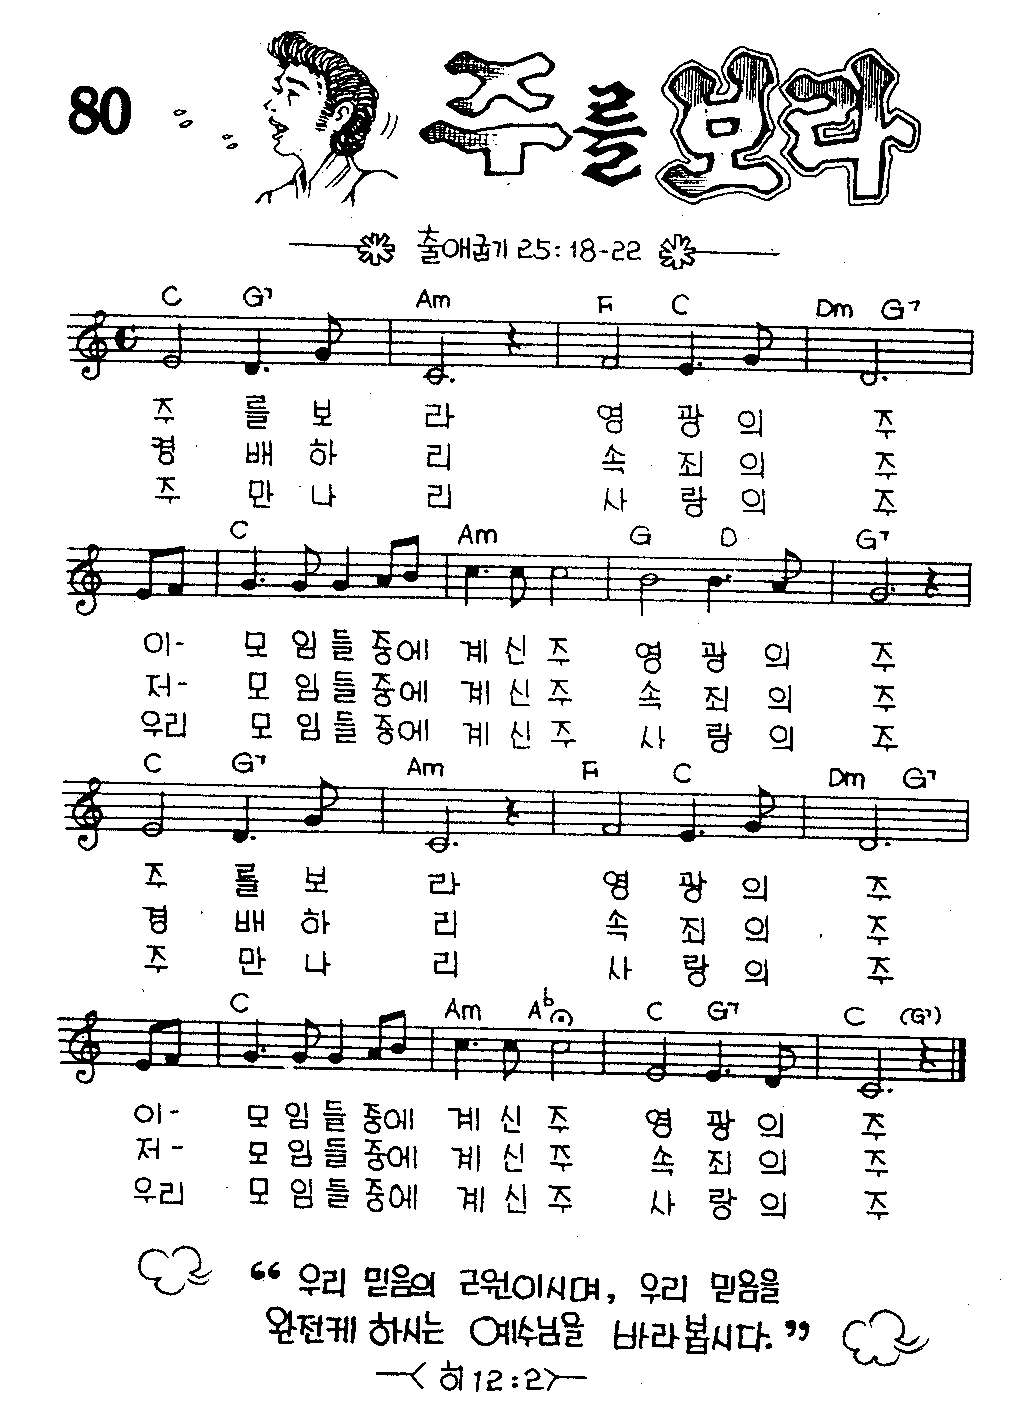 80
주를보라
출애굽기 25:18-22
C G7 Am F C Dm G7
주 를 보 라 영 광 의 주
경 배 하 리 속 죄 의 주
주 만 나 리 사 랑 의 주
C Am G D G7
이- 모 임 들 중에 계 신 주 영 광 의 주
저- 모 임 들 중에 계 신 주 속 죄 의 주
우리 모 임 들 중에 계 신 주 사 랑 의 주
C G7 Am F C Dm G7
주 를 보 라 영 광 의 주
경 배 하 리 속 죄 의 주
주 만 나 리 사 랑 의 주
C Am Ab C G7 C (G7)
이- 모 임 들 중에 계 신 주 영 광 의 주
저- 모 임 들 중에 계 신 주 속 죄 의 주
우리 모 임 들 중에 계 신 주 사 랑 의 주
“우리 믿음의 근원이시며, 우리 믿음을
완전케 하시는 예수님을 바라봅시다.”
히 12:2